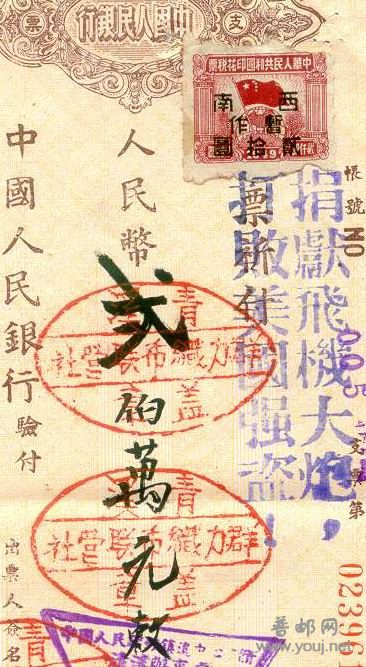 支票
中國人民銀行
中華人民共和國印花稅票
西南
暫作
貳拾圓
帳號 NO
支票第
023961
捐獻飛機大炮，
打敗美國强盜！
票祈付
人民幣
弍佰萬元敕
群力織布联營社
群力織布联營社
中國人民銀行驗付
出票人簽名
中國人民
普邮网
www.youj.net